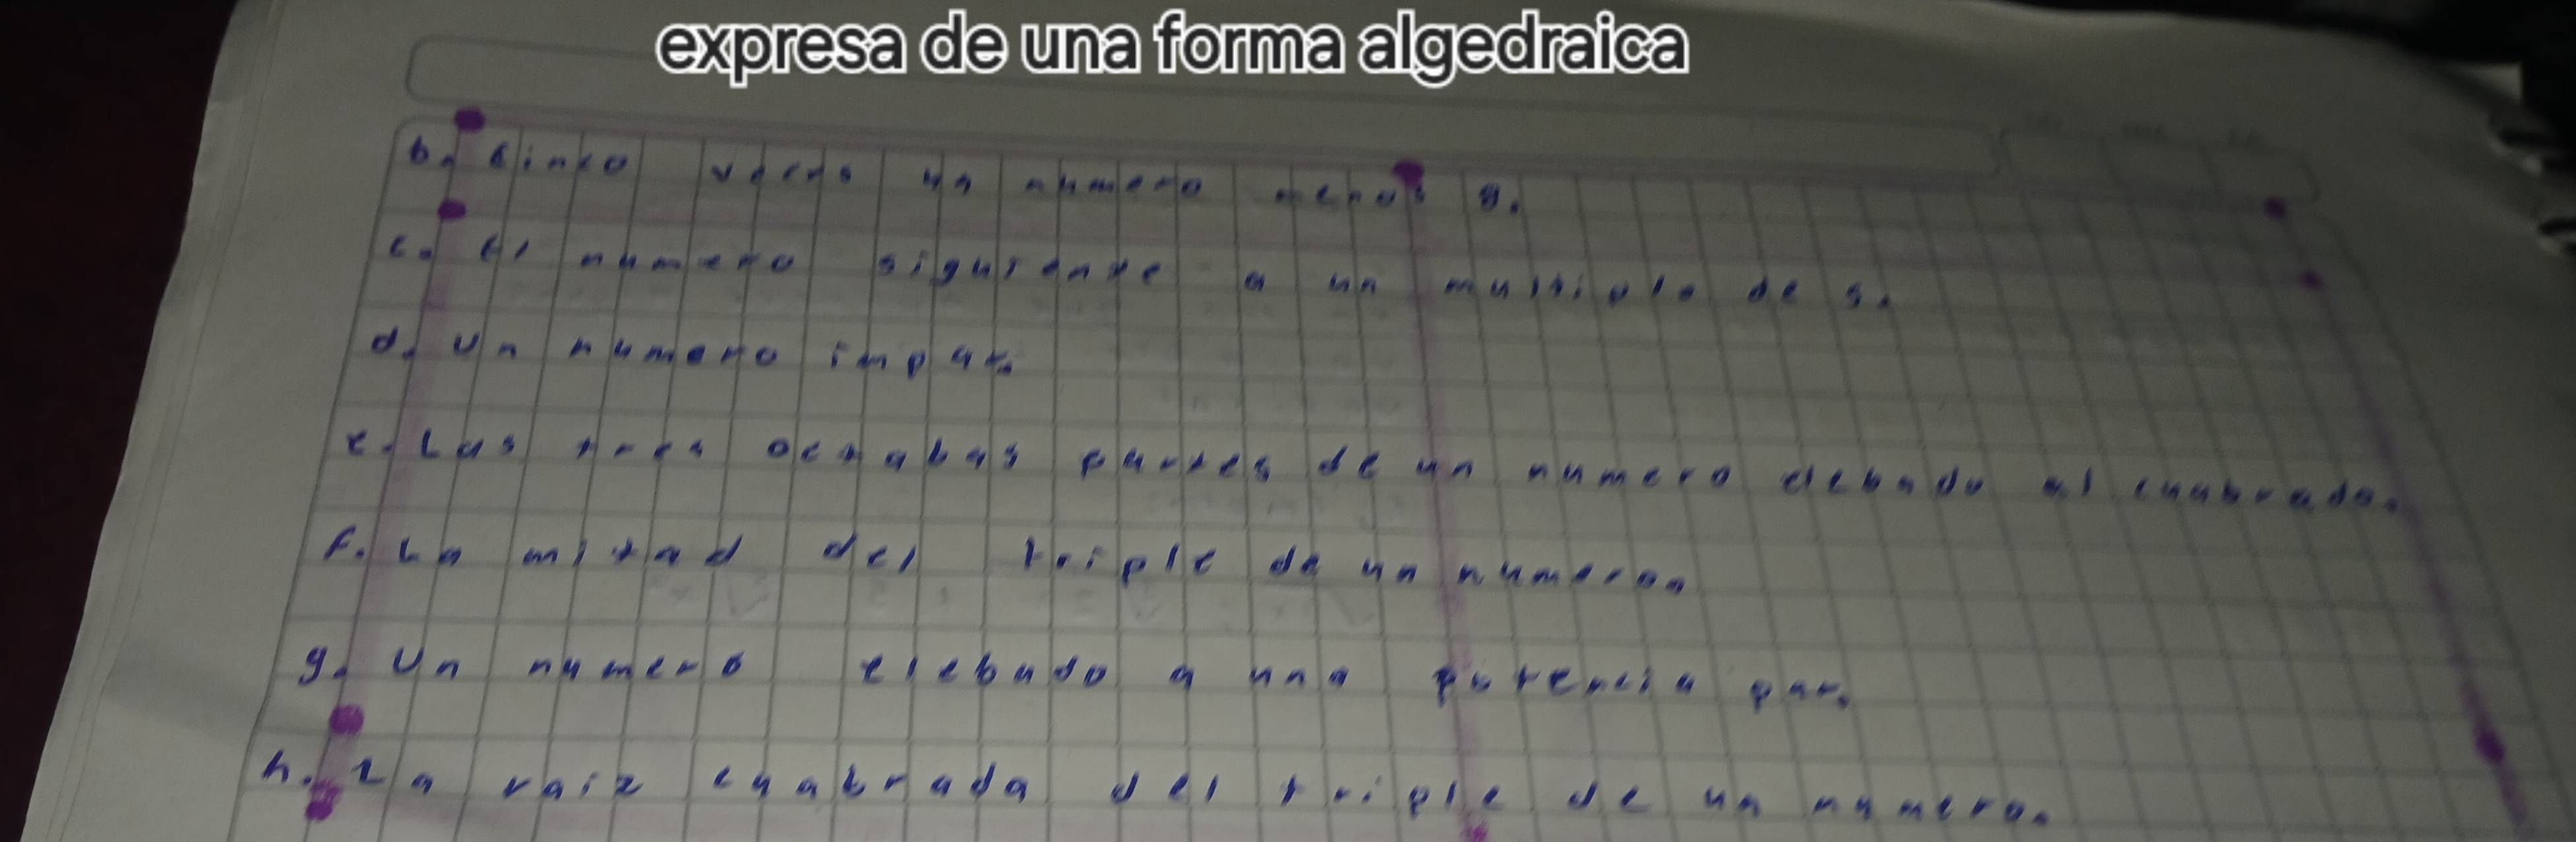 expresa de una forma algedraica
b. Cinco veces un numero menos
c. El numero siguiente a un multiplo de
d. Un numero impar.
e. Las tres octabas partes de un numero al cuabrado.
f. La mitad del triple de un numero.
g. Un numero elebado a una potencia par.
h. La raiz cuabrada del triple de un numero.